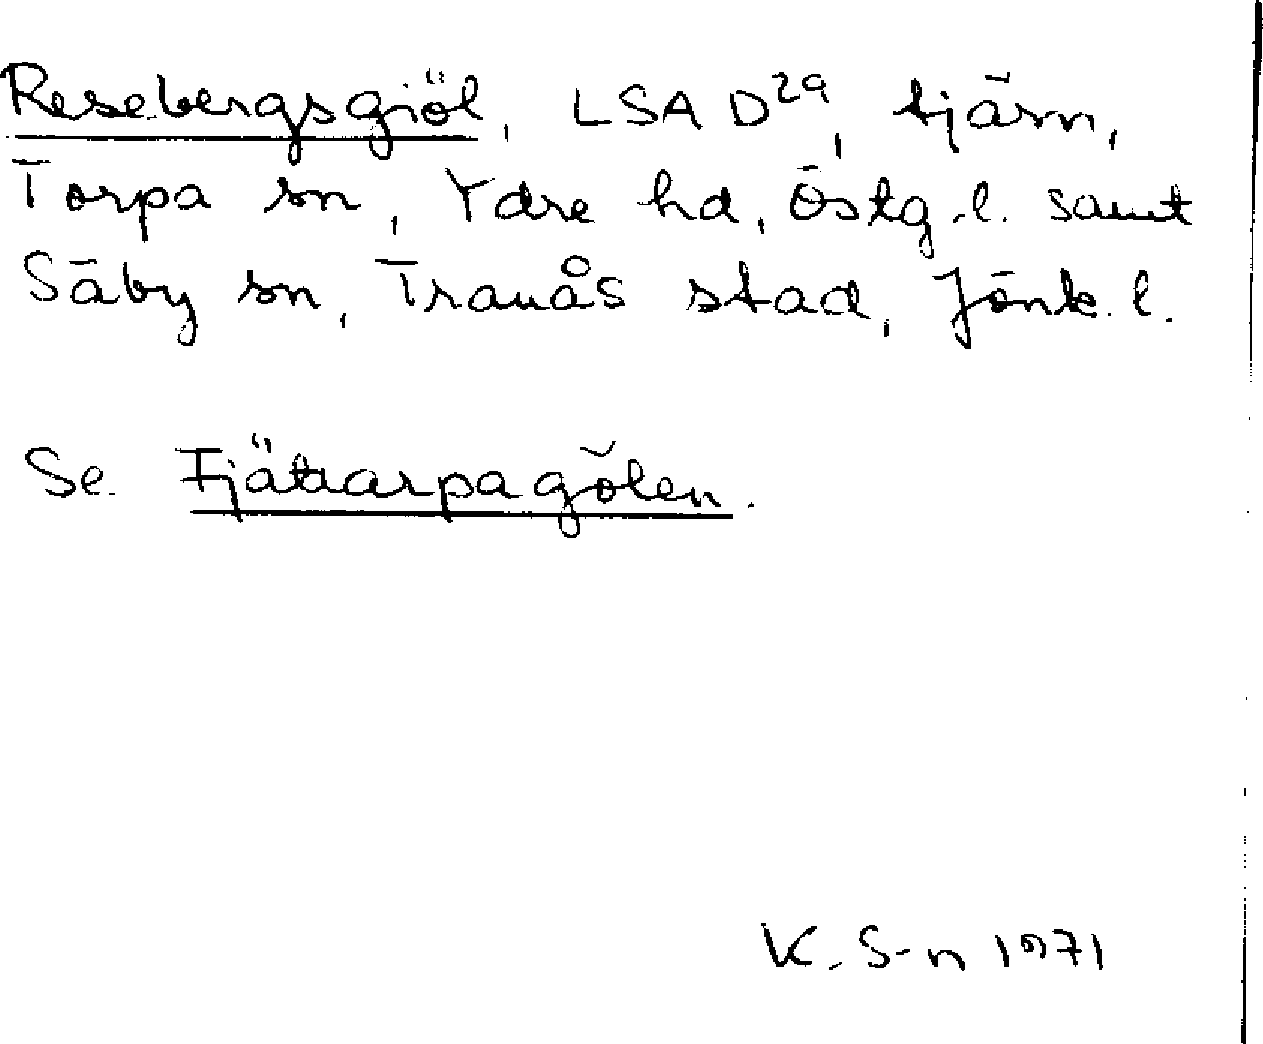 Resebergsgiöl, LSA D29, tjärn,
Torpa sn, Ydre hd, Östg.l. samt
Säby sn, Tranås stad, Jönk.l.
Se Fjätrarpagölen.
K. S-n 1971